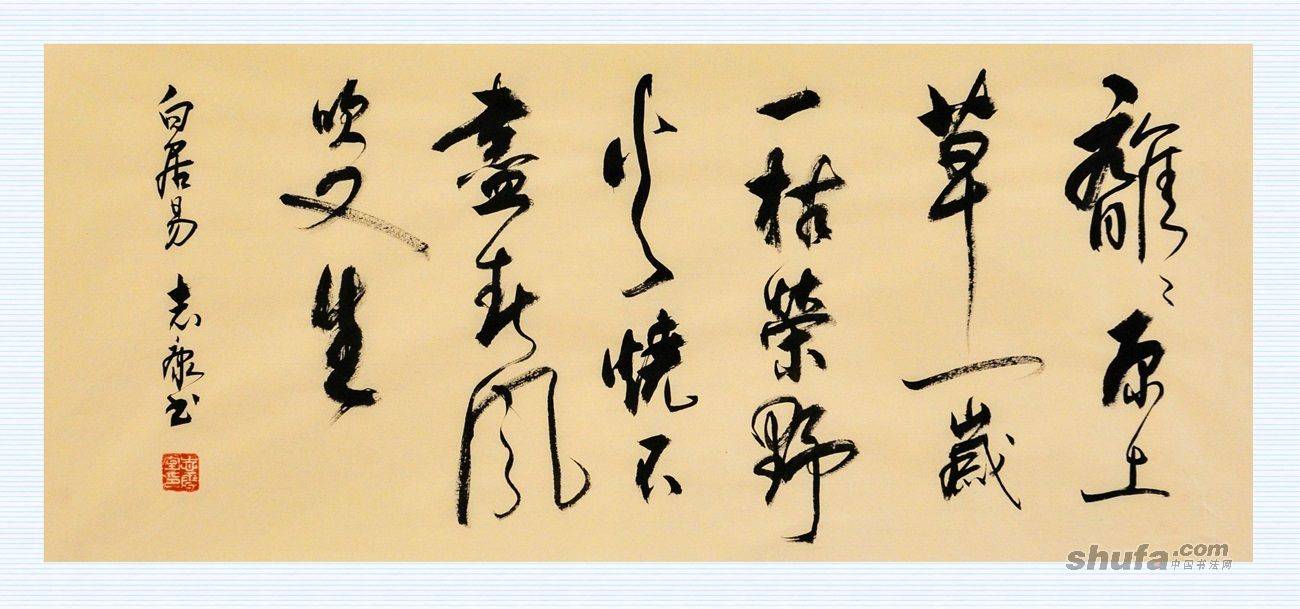 離〻原上
草一歲
一枯榮野
火燒不
盡春風
吹又生
白居易 志康书
shufa.com
中国书法网